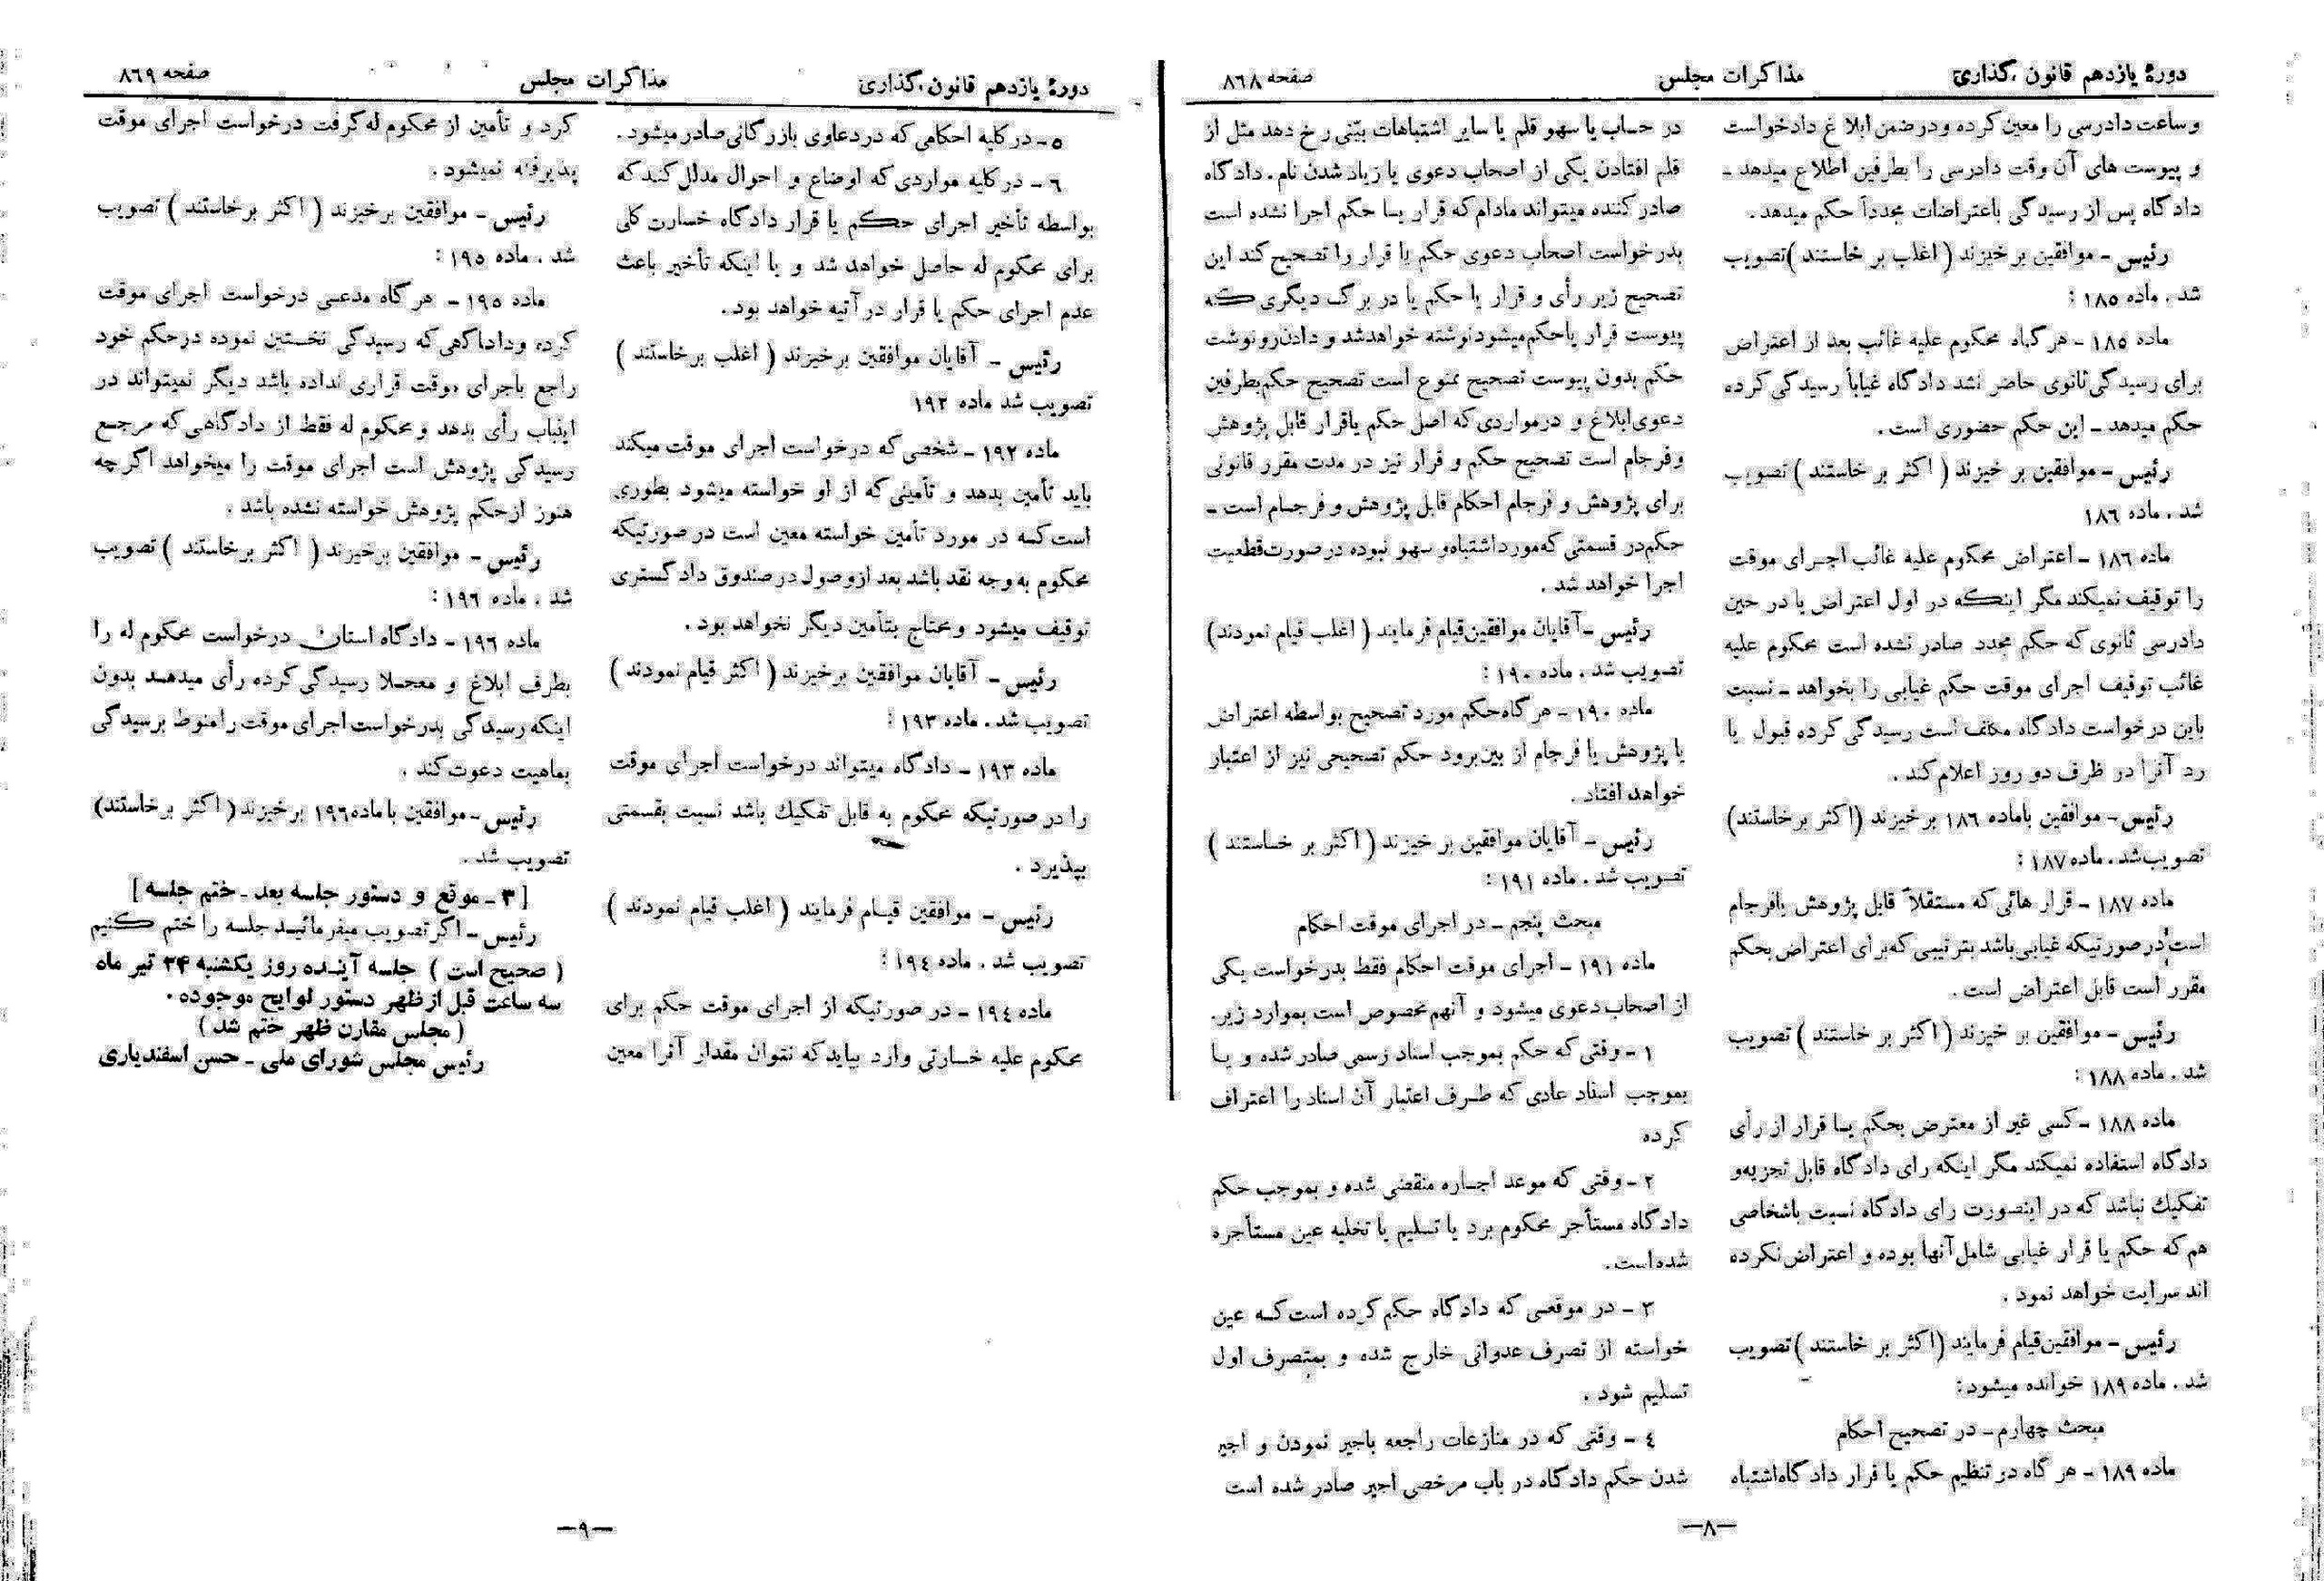 دورهٔ یازدهم قانون گذاری
مذاکرات مجلس
صفحه ۸٦۸
وساعت دادرسی را معین کرده ودرضمن ابلاغ دادخواست
و پیوست های آن وقت دادرسی را بطرفین اطلاع میدهد ـ
دادگاه پس از رسیدگی باعتراضات مجدداً حکم میدهد.
رئیس ـ موافقین برخیزند ( اغلب بر خاستند ) تصویب
شد . ماده ۱۸۵ :
ماده ۱۸۵ ـ هرگاه محکوم علیه غائب بعد از اعتراض
برای رسیدگی ثانوی حاضر نشد دادگاه غیاباً رسیدگی کرده
حکم میدهد ـ این حکم حضوری است .
رئیس ـ موافقین بر خیزند ( اکثر بر خاستند ) تصویب
شد . ماده ۱۸٦
ماده ۱۸٦ ـ اعتراض محکوم علیه غائب اجرای موقت
را توقیف نمیکند مگر اینکه در اول اعتراض یا در حین
دادرسی ثانوی که حکم مجدد صادر نشده است محکوم علیه
غائب توقیف اجرای موقت حکم غیابی را بخواهد ـ نسبت
باین درخواست دادگاه مکلف است رسیدگی کرده قبول یا
رد آنرا در ظرف دو روز اعلام کند .
رئیس ـ موافقین باماده ۱۸٦ برخیزند (اکثر برخاستند)
تصویب شد . ماده ۱۸۷ :
ماده ۱۸۷ ـ قرار هائی که مستقلاً قابل پژوهش یافرجام
است در صورتیکه غیابی باشد بترتیبی که برای اعتراض بحکم
مقرر است قابل اعتراض است .
رئیس ـ موافقین بر خیزند (اکثر بر خاستند ) تصویب
شد . ماده ۱۸۸ :
ماده ۱۸۸ ـ کسی غیر از معترض بحکم یا قرار از رأی
دادگاه استفاده نمیکند مگر اینکه رای دادگاه قابل تجزیه و
تفکیك نباشد که در اینصورت رای دادگاه نسبت باشخاصی
هم که حکم یا قرار غیابی شامل آنها بوده و اعتراض نکرده
اند سرایت خواهد نمود .
رئیس ـ موافقین قیام فرمایند (اکثر بر خاستند ) تصویب
شد . ماده ۱۸۹ خوانده میشود :
مبحث چهارم ـ در تصحیح احکام
ماده ۱۸۹ ـ هر گاه در تنظیم حکم یا قرار دادگاه اشتباه
در حساب یا سهو قلم یا سایر اشتباهات بیّنی رخ دهد مثل از
قلم افتادن یکی از اصحاب دعوی یا زیاد شدن نام . دادگاه
صادر کننده میتواند مادام که قرار یا حکم اجرا نشده است
بدرخواست اصحاب دعوی حکم یا قرار را تصحیح کند این
تصحیح زیر رأی و قرار یا حکم یا در برگ دیگری که
پیوست قرار یاحکم میشود نوشته خواهد شد و دادن رونوشت
حکم بدون پیوست تصحیح ممنوع است تصحیح حکم بطرفین
دعوی ابلاغ و درمواردی که اصل حکم یاقرار قابل پژوهش
وفرجام است تصحیح حکم و قرار نیز در مدت مقرر قانونی
برای پژوهش و فرجام احکام قابل پژوهش و فرجام است ـ
حکم در قسمتی که مورد اشتباه و سهو نبوده در صورت قطعیت
اجرا خواهد شد .
رئیس ـ آقایان موافقین قیام فرمایند ( اغلب قیام نمودند)
تصویب شد . ماده ۱۹۰ :
ماده ۱۹۰ ـ هرگاه حکم مورد تصحیح بواسطه اعتراض
یا پژوهش یا فرجام از بین برود حکم تصحیحی نیز از اعتبار
خواهد افتاد .
رئیس ـ آقایان موافقین بر خیزند ( اکثر بر خاستند )
تصویب شد . ماده ۱۹۱ :
مبحث پنجم ـ در اجرای موقت احکام
ماده ۱۹۱ ـ اجرای موقت احکام فقط بدرخواست یکی
از اصحاب دعوی میشود و آنهم مخصوص است بموارد زیر.
۱ ـ وقتی که حکم بموجب اسناد رسمی صادر شده و یا
بموجب اسناد عادی که طرف اعتبار آن اسناد را اعتراف
کرده
۲ ـ وقتی که موعد اجاره منقضی شده و بموجب حکم
دادگاه مستأجر محکوم برد یا تسلیم یا تخلیه عین مستأجره
شده است .
۳ ـ در موقعی که دادگاه حکم کرده است که عین
خواسته از تصرف عدوانی خارج شده و بمتصرف اول
تسلیم شود .
٤ ـ وقتی که در منازعات راجعه باجیر نمودن و اجیر
شدن حکم دادگاه در باب مرخصی اجیر صادر شده است
ـ۸ـ
دورهٔ یازدهم قانون گذاری
مذاکرات مجلس
صفحه ۸٦۹
۵ ـ در کلیه احکامی که در دعاوی بازرگانی صادر میشود .
٦ ـ در کلیه مواردی که اوضاع و احوال مدلل کند که
بواسطه تأخیر اجرای حکم یا قرار دادگاه خسارت کلی
برای محکوم له حاصل خواهد شد و یا اینکه تأخیر باعث
عدم اجرای حکم یا قرار در آتیه خواهد بود .
رئیس ـ آقایان موافقین برخیزند ( اغلب برخاستند )
تصویب شد ماده ۱۹۲
ماده ۱۹۲ ـ شخصی که درخواست اجرای موقت میکند
باید تأمین بدهد و تأمینی که از او خواسته میشود بطوری
است که در مورد تأمین خواسته معین است در صورتیکه
محکوم به وجه نقد باشد بعد از وصول در صندوق دادگستری
توقیف میشود و محتاج بتأمین دیگر نخواهد بود .
رئیس ـ آقایان موافقین برخیزند ( اکثر قیام نمودند )
تصویب شد . ماده ۱۹۳ :
ماده ۱۹۳ ـ دادگاه میتواند درخواست اجرای موقت
را در صورتیکه محکوم به قابل تفکیك باشد نسبت بقسمتی
بپذیرد .
رئیس ـ موافقین قیام فرمایند ( اغلب قیام نمودند )
تصویب شد . ماده ۱۹٤ :
ماده ۱۹٤ ـ در صورتیکه از اجرای موقت حکم برای
محکوم علیه خسارتی وارد بیاید که نتوان مقدار آنرا معین
کرد و تأمین از محکوم له گرفت درخواست اجرای موقت
پذیرفته نمیشود .
رئیس ـ موافقین برخیزند ( اکثر برخاستند ) تصویب
شد . ماده ۱۹۵ :
ماده ۱۹۵ ـ هرگاه مدعی درخواست اجرای موقت
کرده وداداگاهی که رسیدگی نخستین نموده درحکم خود
راجع باجرای موقت قراری نداده باشد دیگر نمیتواند در
اینباب رأی بدهد و محکوم له فقط از دادگاهی که مرجع
رسیدگی پژوهش است اجرای موقت را میخواهد اگر چه
هنوز ازحکم پژوهش خواسته نشده باشد .
رئیس ـ موافقین برخیزند ( اکثر برخاستند ) تصویب
شد . ماده ۱۹٦ :
ماده ۱۹٦ ـ دادگاه استان درخواست محکوم له را
بطرف ابلاغ و معجلا رسیدگی کرده رأی میدهد بدون
اینکه رسیدگی بدرخواست اجرای موقت را منوط برسیدگی
بماهیت دعوت کند .
رئیس ـ موافقین با ماده ۱۹٦ برخیزند ( اکثر برخاستند)
تصویب شد .
[ ۳ ـ موقع و دستور جلسه بعد ـ ختم جلسه ]
رئیس ـ اگر تصویب میفرمائید جلسه را ختم کنیم
( صحیح است ) جلسه آینده روز یکشنبه ۲۴ تیر ماه
سه ساعت قبل از ظهر دستور لوایح موجوده .
( مجلس مقارن ظهر ختم شد )
رئیس مجلس شورای ملی ـ حسن اسفندیاری
ـ۹ـ